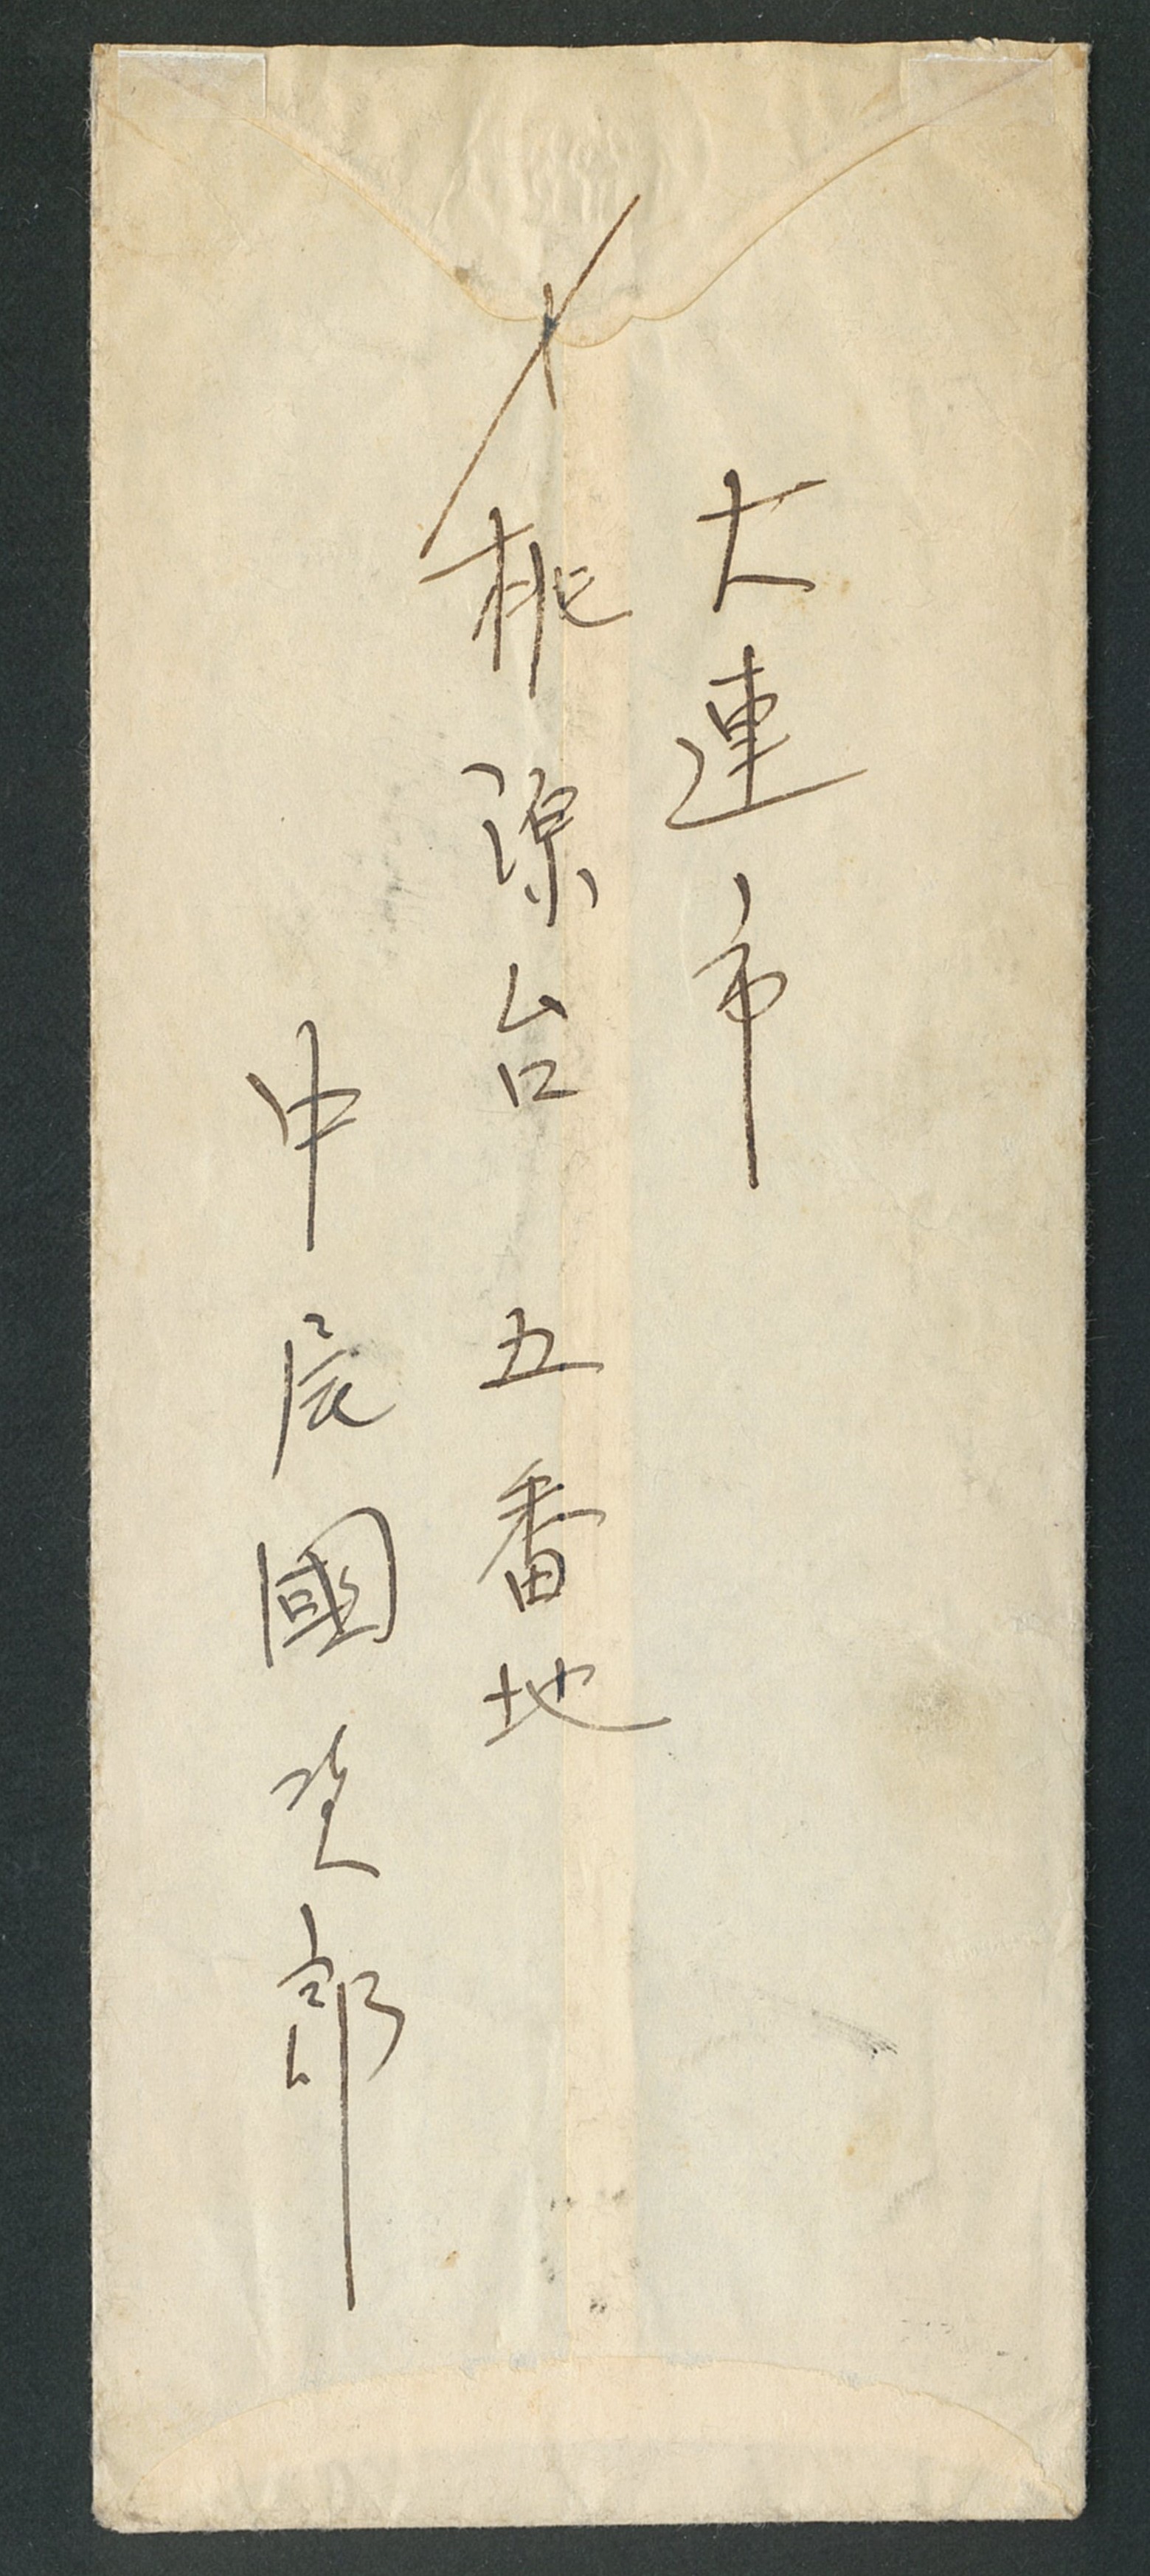 〆
大連市
桃源台 五番地
中辰國 郎